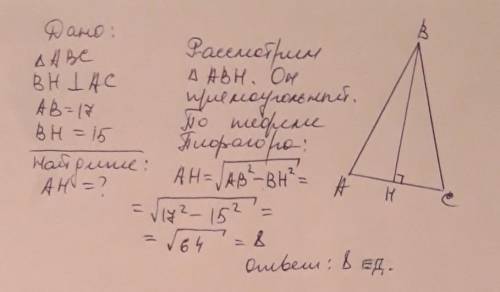 Дано:
△ABC
BH ⊥ AC
AB = 17
BH = 15
Найдите:
AH = ?
Рассмотрим
△ABH. Он
прямоугольный.
По теореме
Пифагора:
AH = √AB² − BH² =
= √17² − 15² =
= √64 = 8
ответ: 8 ед.
B
A
H
C